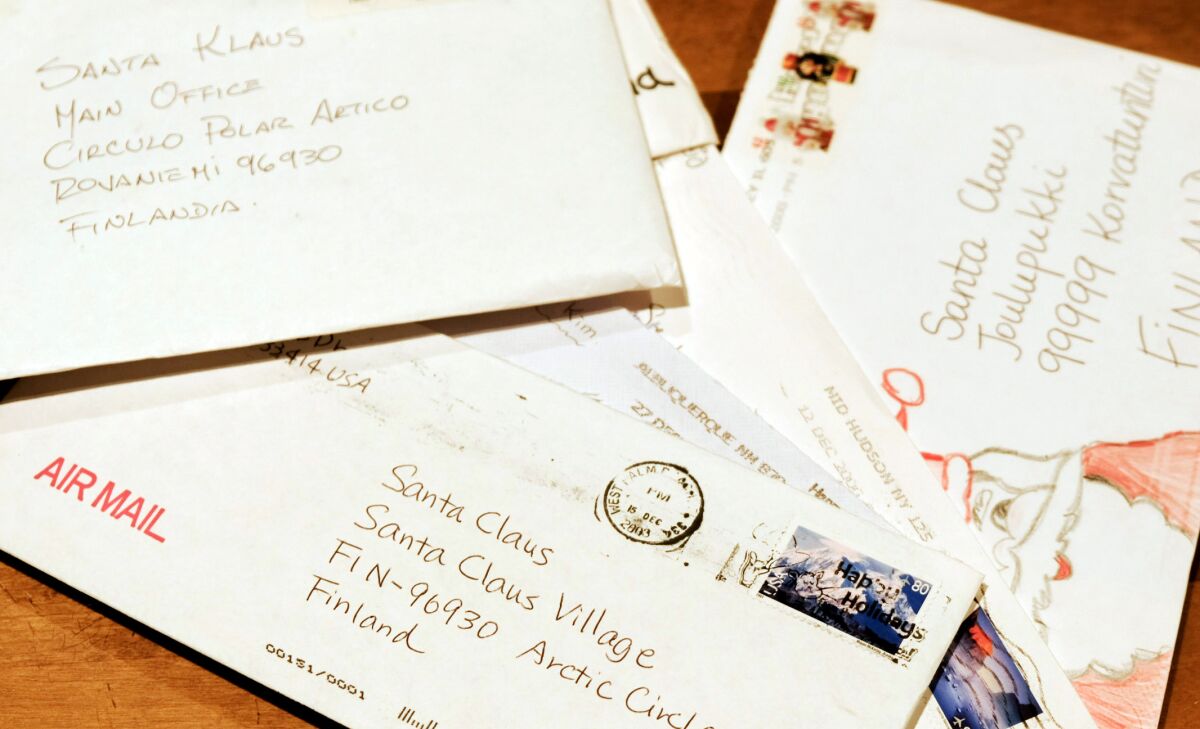 SANTA KLAUS
MAIN OFFICE
CIRCULO POLAR ARTICO
ROVANIEMI 96930
FINLANDIA.
Santa Claus
Joulupukki
99999 Korvatunturi
33414 USA
AIR MAIL
Santa Claus
Santa Claus Village
FIN-96930 Arctic Circle
Finland
00151/0001
PM
15 DEC
2003
334
Happy
Holidays
USA
80
Kim
ALBUQUERQUE NM
27 DEC
MID HUDSON NY 125
12 DEC